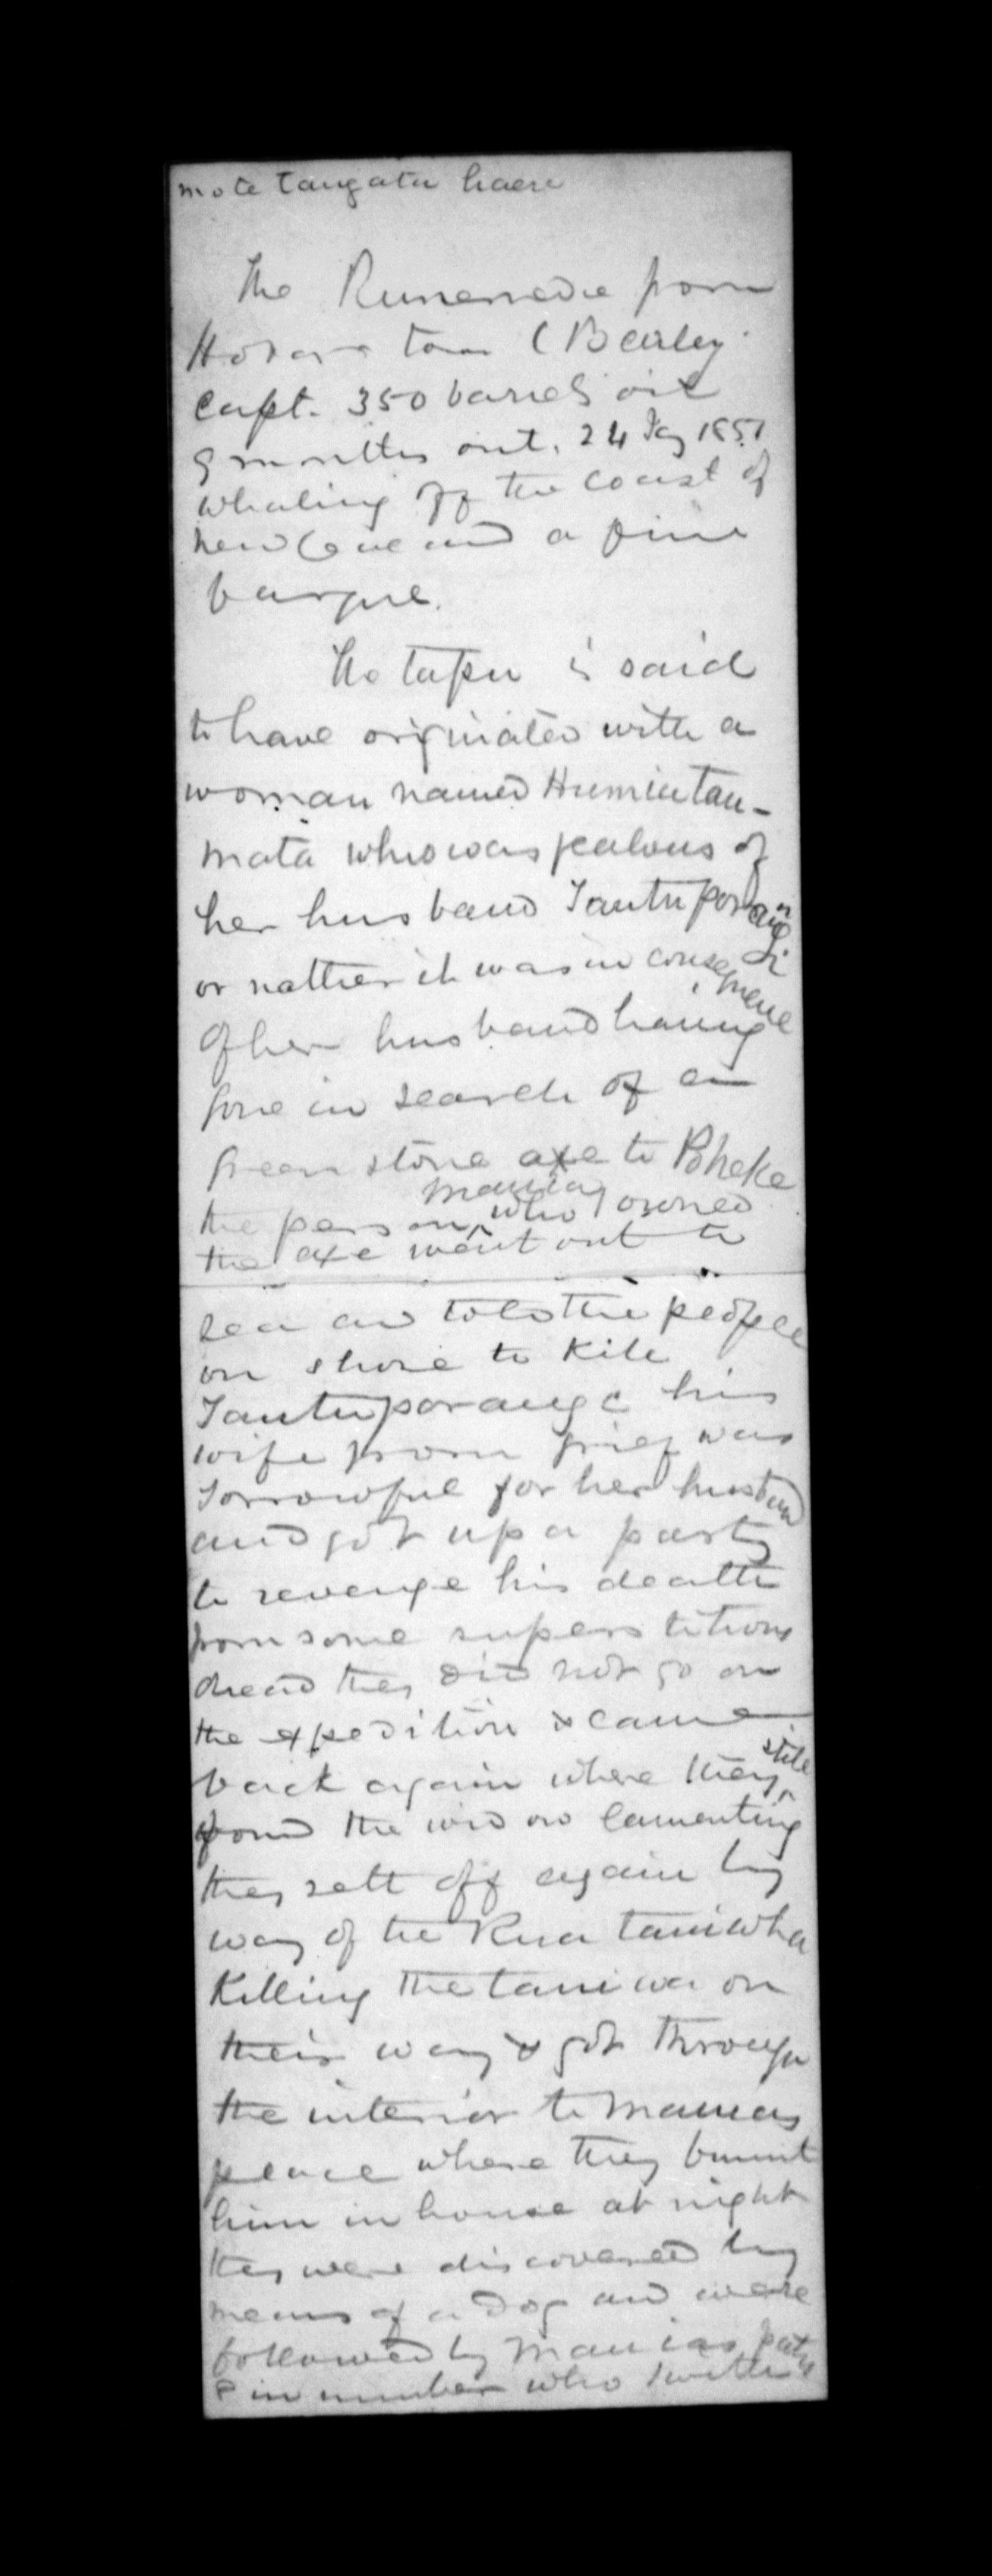 mo te Tangata haere
The Runemede from
Hobar town (Bearley
Capt. 350 barrels oil
9 months out. 24 1851
whaling off the coast of
new a fine
barque.
The tapu is said
to have originated with a
woman named
mata who was jealous of
her husband Tautuporangi
or rather it was in consequence
of her husband having
gone in search of an
green stone axe to Poheke
the person mauia who owned
the axe went out to
sea and told the people
on shore to kill
Tautuporangi his
wife from grief was
sorrowful for her husband
and got up a party
to revenge his death
from some superstitious
dread they did not go on
the expedition & came
back again where they still
found the widow lamenting
they sett off again by
way of the Rua taniwha
killing the taniwa on
their way & got through
the interior to mauias
place where they burnt
him in house at night
they were discovered by
means of a Dog and were
followed by mauias party
8 in number who